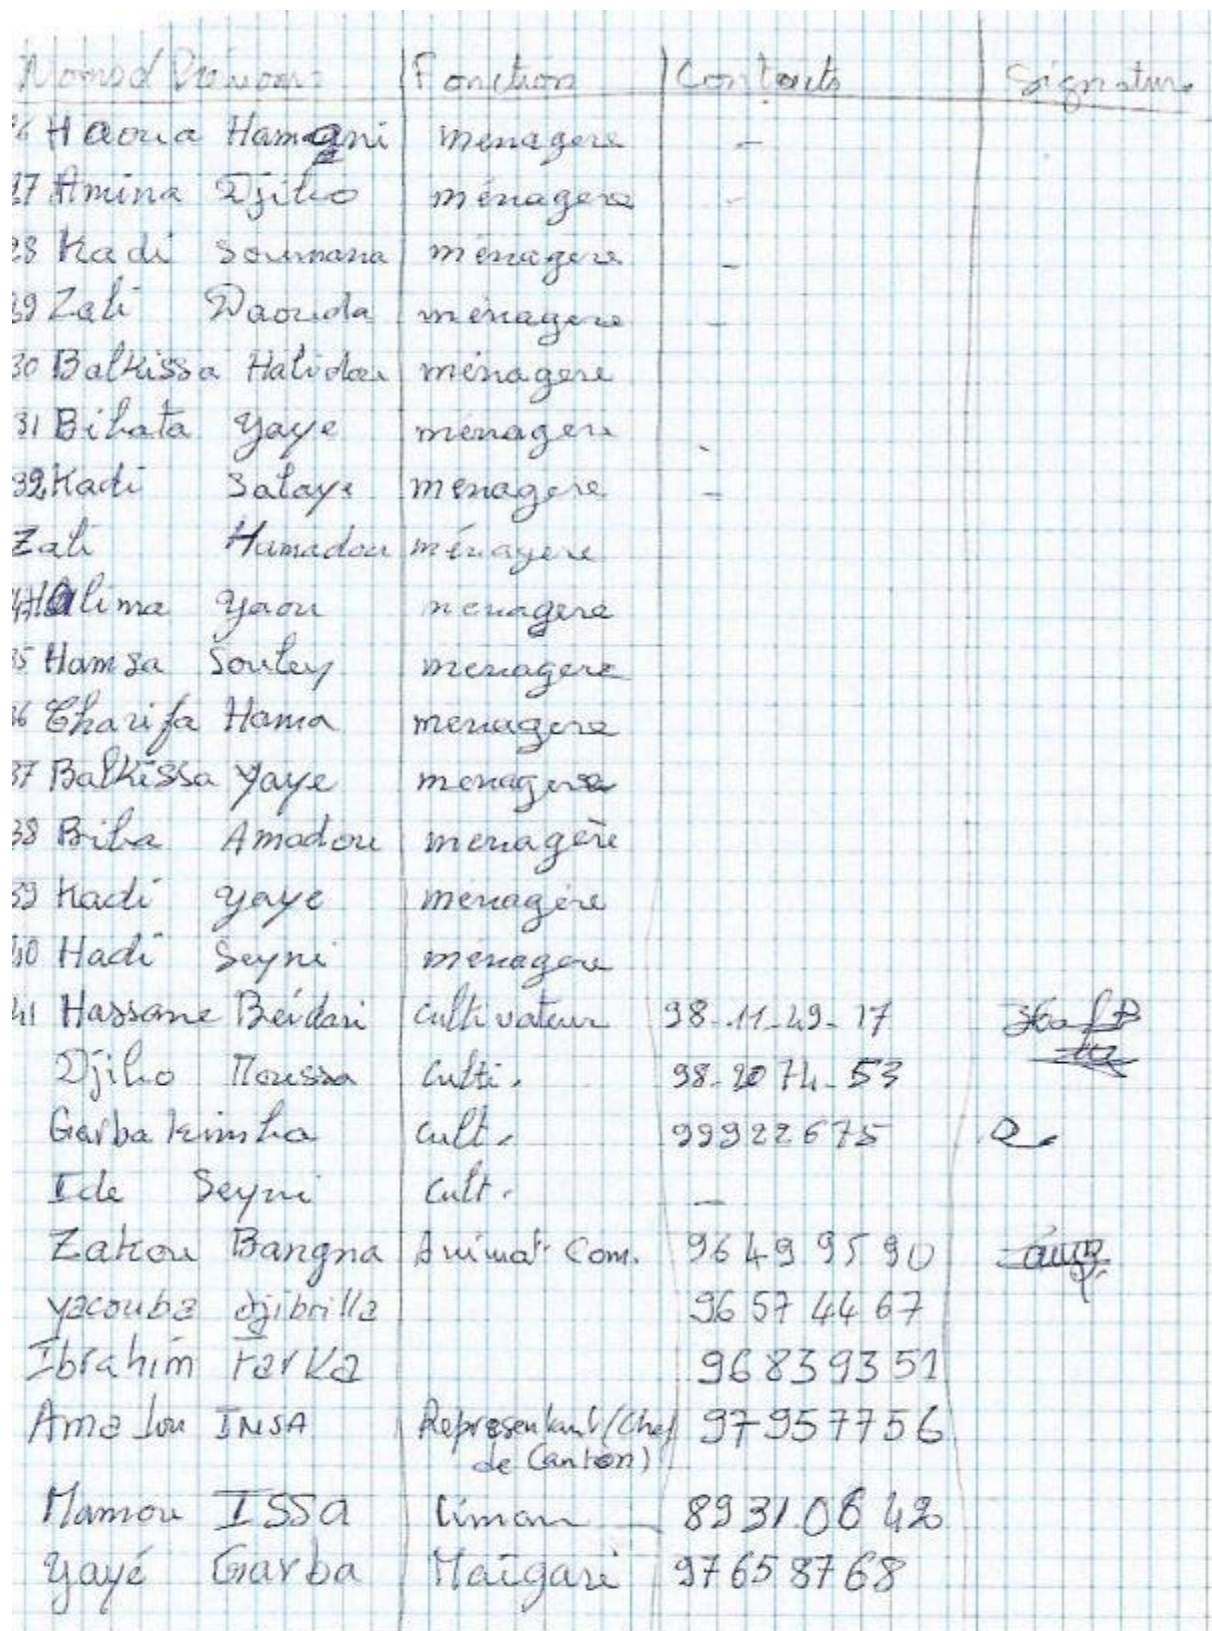 Noms & Prénoms Fonction Contacts Signature
26 Haoua Hamani menagere -
27 Amina Djibo ménagere -
28 Kadi Soumana menagere -
29 Zali Daouda menagere -
30 Balkissa Halidou ménagere
31 Bibata Yaye menagere -
32 Kadi Salaye menagere -
Zali Hamadou ménagere
Halima Yaou menagere
35 Hamsa Souley menagere
36 Charifa Hama menagere
37 Balkissa Yaye menagere
38 Biba Amadou menagère
39 Kadi Yaye menagère
40 Hadi Seyni menagere
41 Hassane Beidari Cultivateur 98-11-49-17
Djibo Moussa Culti. 98-20 74-53
Garba Kimba Cult. 99922675
Ide Seyni Cult. -
Zakou Bangna Animat Com. 96 49 95 90
Yacouba djibrilla 96 57 44 67
Ibrahim Farka 96839351
Amadou INSA Representant (Chef 97957756
de Canton)
Mamou ISSA Liman 89310642
Yayé Garba Maïgari 97658768